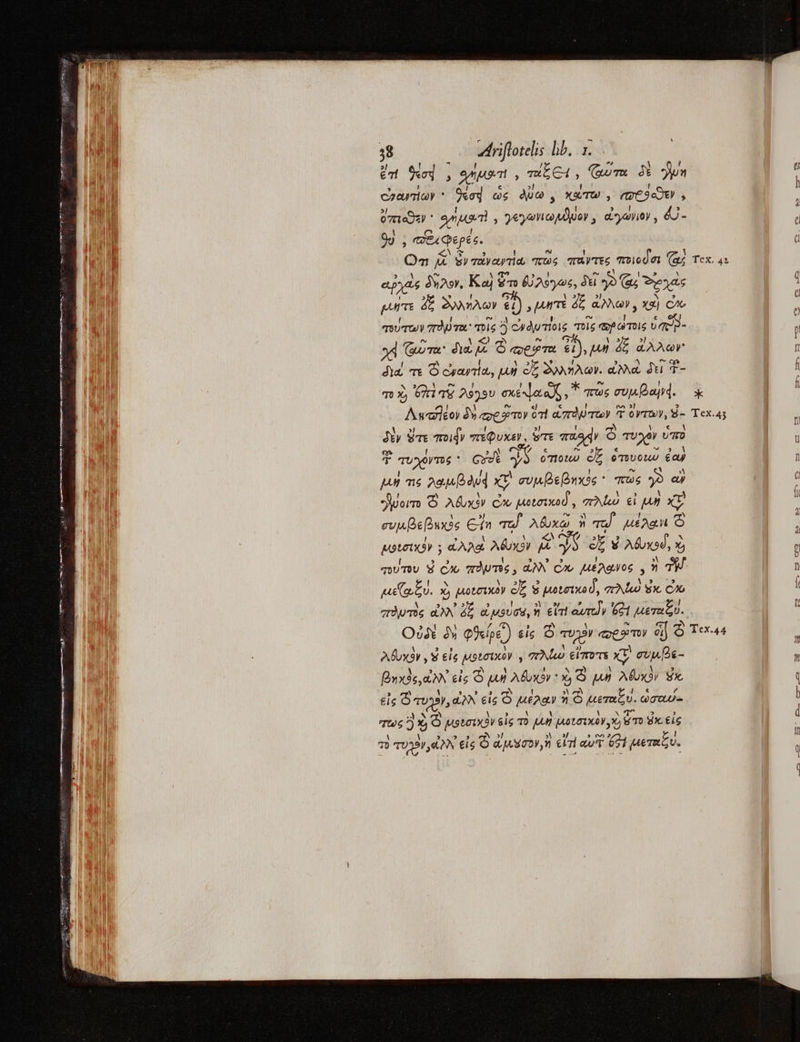 38 Aristotelis lib. 1.
ἔτι θέσει, σχήματι, τάξει, ταῦτα δὲ γένη
ἐναντίων· θέσει ὡς ἄνω, κάτω, πρόσθεν,
ὄπισθεν· σχήματι, γεγωνιωμένον, ἀγώνιον, εὐ-
θὺ, περιφερές.
Ὅτι μὲν οὖν τἀναντία πως πάντες ποιοῦσι τὰς Tex. 42
ἀρχὰς δῆλον, Καὶ τοῦτο εὐλόγως, δεῖ γὰρ τὰς ἀρχὰς
μήτε ἐξ ἀλλήλων εἶναι, μήτε ἐξ ἄλλων, καὶ ἐκ
τούτων πάντα· τοῖς δὲ ἐναντίοις τοῖς πρώτοις ὑπάρ-
χει ταῦτα· διὰ μὲν τὸ πρῶτα εἶναι, μὴ ἐξ ἄλλων·
διὰ τε τὸ ἐναντία, μὴ ἐξ ἀλλήλων. ἀλλὰ δεῖ τοῦ-
το καὶ ἐπὶ τοῦ λόγου σκέψασθαι, * πῶς συμβαίνει. *
Ληπτέον δὴ πρῶτον ὅτι ἁπάντων τῶν ὄντων, οὐ- Tex. 43
δὲν οὔτε ποιεῖν πέφυκεν, οὔτε πάσχειν τὸ τυχὸν ὑπὸ
τοῦ τυχόντος· οὐδὲ γίνεται ὁποιοῦν ἐξ ὁτουοῦν ἐὰν
μή τις λαμβάνει κατὰ συμβεβηκός· πῶς γὰρ ἂν
γένοιτο τὸ λευκὸν ἐκ μουσικοῦ, πλὴν εἰ μὴ κατὰ
συμβεβηκὸς εἴη τῷ λευκῷ ἢ τῷ μέλανι τὸ
μουσικόν; ἀλλὰ λευκὸν μὲν γίνεται ἐξ οὐ λευκοῦ, καὶ
τούτου οὐκ ἐκ παντός, ἀλλ' ἐκ μέλανος, ἢ τῶν
μεταξύ. καὶ μουσικὸν ἐξ οὐ μουσικοῦ, πλὴν οὐκ ἐκ
παντὸς ἀλλ' ἐξ ἀμούσου, ἢ εἴ τι αὐτῶν ἐστι μεταξύ.
Οὐδὲ δὴ φθείρεται εἰς τὸ τυχὸν πρῶτον οἷον τὸ Tex. 44
λευκὸν, οὐ εἰς μουσικὸν, πλὴν εἴποτε κατὰ συμβε-
βηκὸς, ἀλλ' εἰς τὸ μὴ λευκόν· καὶ τὸ μὴ λευκὸν οὐκ
εἰς τὸ τυχὸν, ἀλλ' εἰς τὸ μέλαν ἢ τὸ μεταξύ. ὡσαύ-
τως δὲ καὶ τὸ μουσικὸν εἰς τὸ μὴ μουσικόν, καὶ τοῦτο οὐκ εἰς
τὸ τυχὸν, ἀλλ' εἰς τὸ ἄμουσον, ἢ εἴ τι αὐτῶν ἐστι μεταξύ.